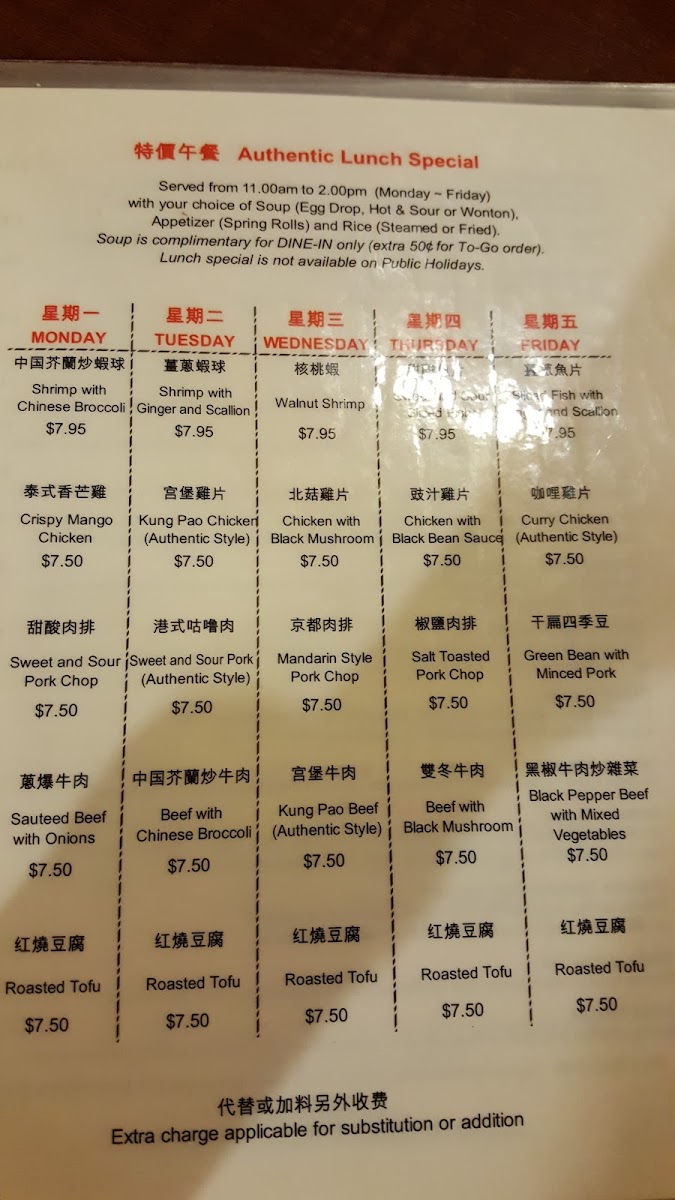 特價午餐 Authentic Lunch Special
Served from 11.00am to 2.00pm (Monday ~ Friday)
with your choice of Soup (Egg Drop, Hot & Sour or Wonton),
Appetizer (Spring Rolls) and Rice (Steamed or Fried).
Soup is complimentary for DINE-IN only (extra 50¢ for To-Go order).
Lunch special is not available on Public Holidays.
星期一
MONDAY
中国芥蘭炒蝦球
Shrimp with
Chinese Broccoli
$7.95
泰式香芒雞
Crispy Mango
Chicken
$7.50
甜酸肉排
Sweet and Sour
Pork Chop
$7.50
蔥爆牛肉
Sauteed Beef
with Onions
$7.50
红燒豆腐
Roasted Tofu
$7.50
星期二
TUESDAY
薑蔥蝦球
Shrimp with
Ginger and Scallion
$7.95
宫堡雞片
Kung Pao Chicken
(Authentic Style)
$7.50
港式咕噜肉
Sweet and Sour Pork
(Authentic Style)
$7.50
中国芥蘭炒牛肉
Beef with
Chinese Broccoli
$7.50
红燒豆腐
Roasted Tofu
$7.50
星期三
WEDNESDAY
核桃蝦
Walnut Shrimp
$7.95
北菇雞片
Chicken with
Black Mushroom
$7.50
京都肉排
Mandarin Style
Pork Chop
$7.50
宫堡牛肉
Kung Pao Beef
(Authentic Style)
$7.50
红燒豆腐
Roasted Tofu
$7.50
星期四
THURSDAY
and Sour
$7.95
豉汁雞片
Chicken with
Black Bean Sauce
$7.50
椒鹽肉排
Salt Toasted
Pork Chop
$7.50
雙冬牛肉
Beef with
Black Mushroom
$7.50
红燒豆腐
Roasted Tofu
$7.50
星期五
FRIDAY
魚片
Fish with
and Scallion
7.95
咖哩雞片
Curry Chicken
(Authentic Style)
$7.50
干扁四季豆
Green Bean with
Minced Pork
$7.50
黑椒牛肉炒雜菜
Black Pepper Beef
with Mixed
Vegetables
$7.50
红燒豆腐
Roasted Tofu
$7.50
代替或加料另外收费
Extra charge applicable for substitution or addition